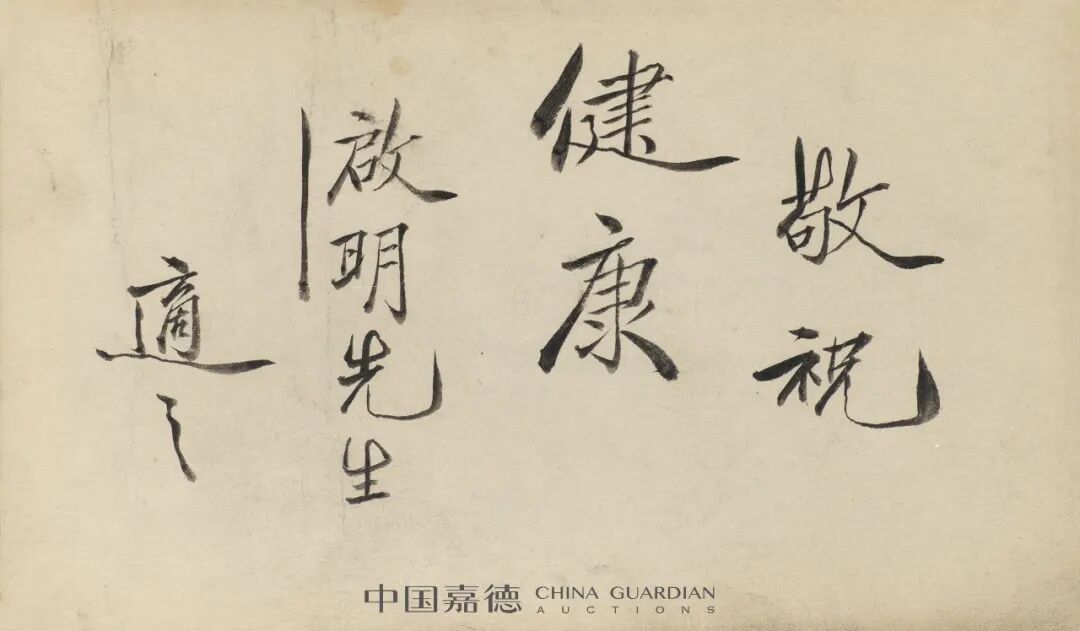 敬祝
健康
啟明先生
適之
中国嘉德 CHINA GUARDIAN
AUCTIONS